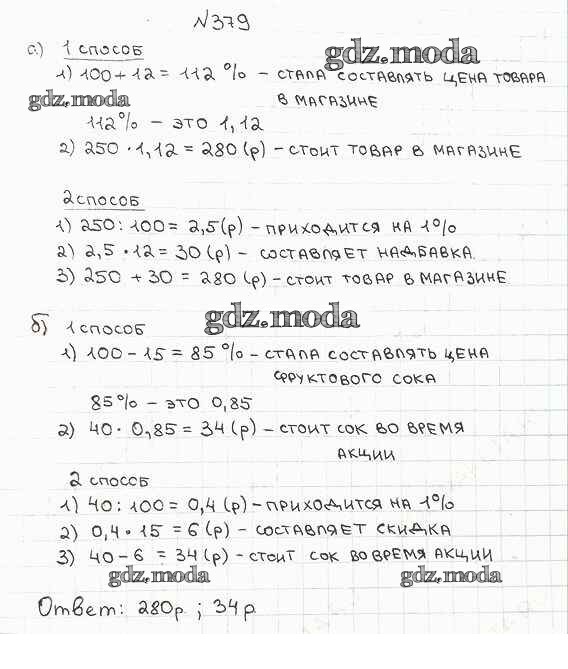 №379
а) 1 способ
gdz.moda
1) 100 + 12 = 112 % – стала составлять цена товара
gdz.moda
в магазине
112% – это 1,12
2) 250 · 1,12 = 280 (р) – стоит товар в магазине
2 способ
1) 250 : 100 = 2,5 (р) – приходится на 1%
2) 2,5 · 12 = 30 (р) – составляет надбавка
3) 250 + 30 = 280 (р) – стоит товар в магазине
gdz.moda
б) 1 способ
1) 100 – 15 = 85 % – стала составлять цена
фруктового сока
85% – это 0,85
2) 40 · 0,85 = 34 (р) – стоит сок во время
акции
2 способ
1) 40 : 100 = 0,4 (р) – приходится на 1%
2) 0,4 · 15 = 6 (р) – составляет скидка
3) 40 – 6 = 34 (р) – стоит сок во время акции
gdz.moda gdz.moda
Ответ: 280р ; 34р